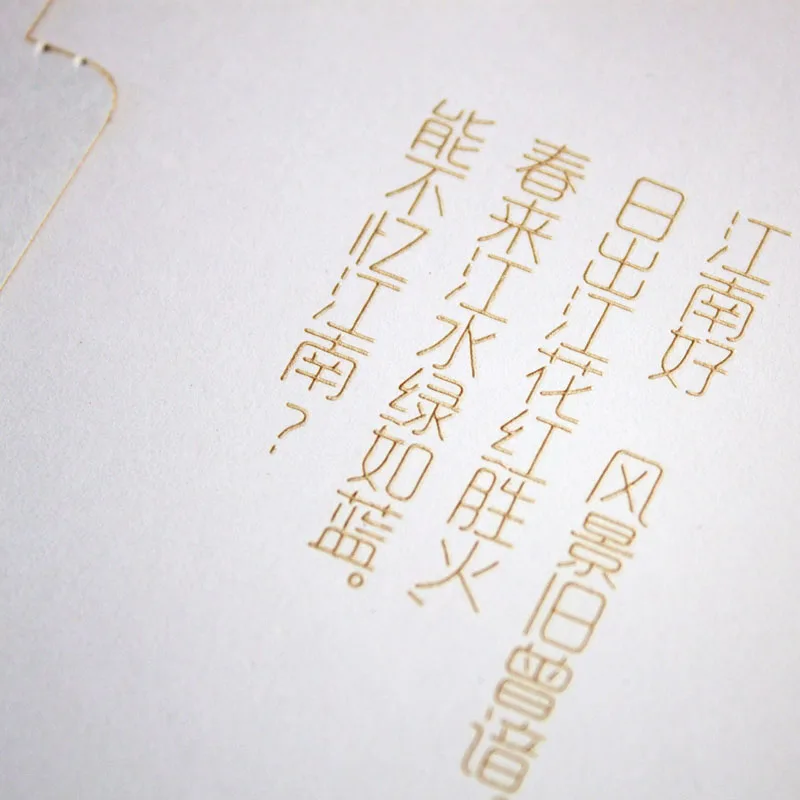 江南好 风景旧曾谙。
日出江花红胜火，
春来江水绿如蓝。
能不忆江南？